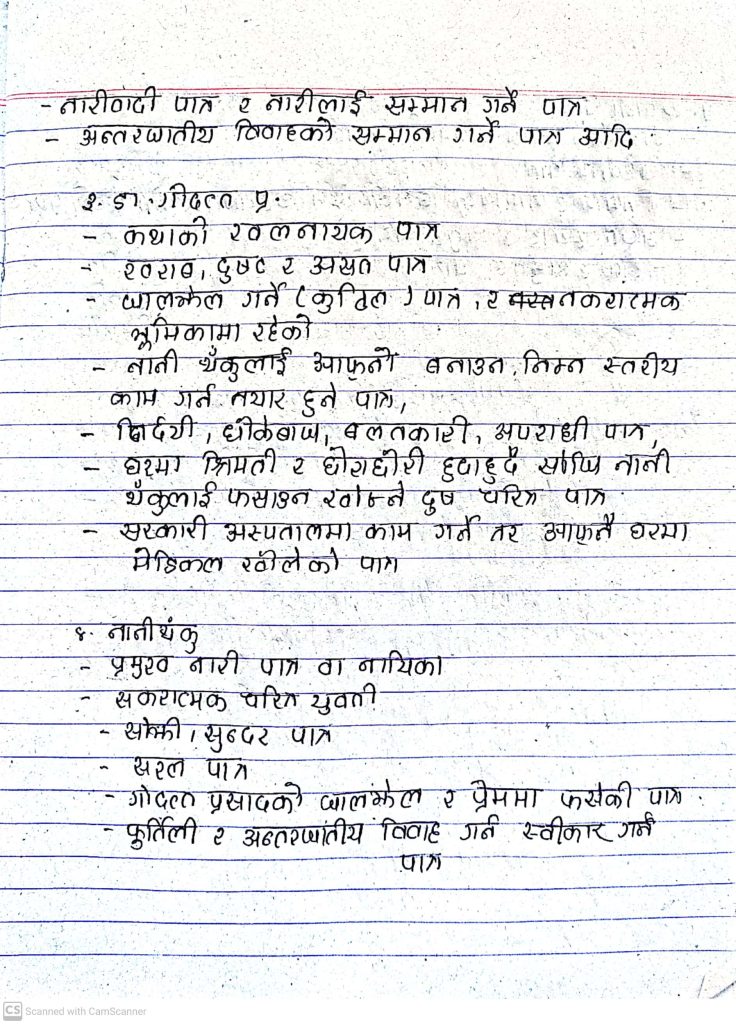 - नारीवादी पात्र र नारीलाई सम्मान गर्ने पात्र
- अन्तरजातीय विवाहको सम्मान गर्ने पात्र आदि
३. डा. गोदत्त प्र.
- कथाको खलनायक पात्र
- खराब, दुष्ट र असत पात्र
- जालझेल गर्ने (कुटिल) पात्र, र
भूमिकामा रहेको
- नानी थैंकुलाई आफ्नो बनाउन, निम्न स्तरीय
काम गर्न तयार हुने पात्र,
- निर्दयी, धोकेबाज, बलत्कारी, अपराधी पात्र,
- घरमा श्रिमती र छोराछोरी हुदाहुदै नानी
थैंकुलाई फसाउन खोज्ने दुष चरित्र पात्र
- सरकारी अस्पतालमा काम गर्ने तर आफ्नै घरमा
मेडिकल खोलेको पात्र
४. नानीथैंकु
- प्रमुख नारी पात्र वा नायिका
- सकरात्मक चरित्र युवती
- सोझी, सुन्दर पात्र
- सरल पात्र
- गोदत्त प्रसादको जालझेल र प्रेममा फसेकी पात्र.
- फुर्तिली र अन्तरजातीय विवाह गर्न स्वीकार गर्ने
पात्र
CS Scanned with CamScanner